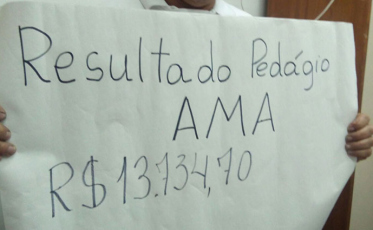 Resultado Pedágio
AMA
R$13.734,70